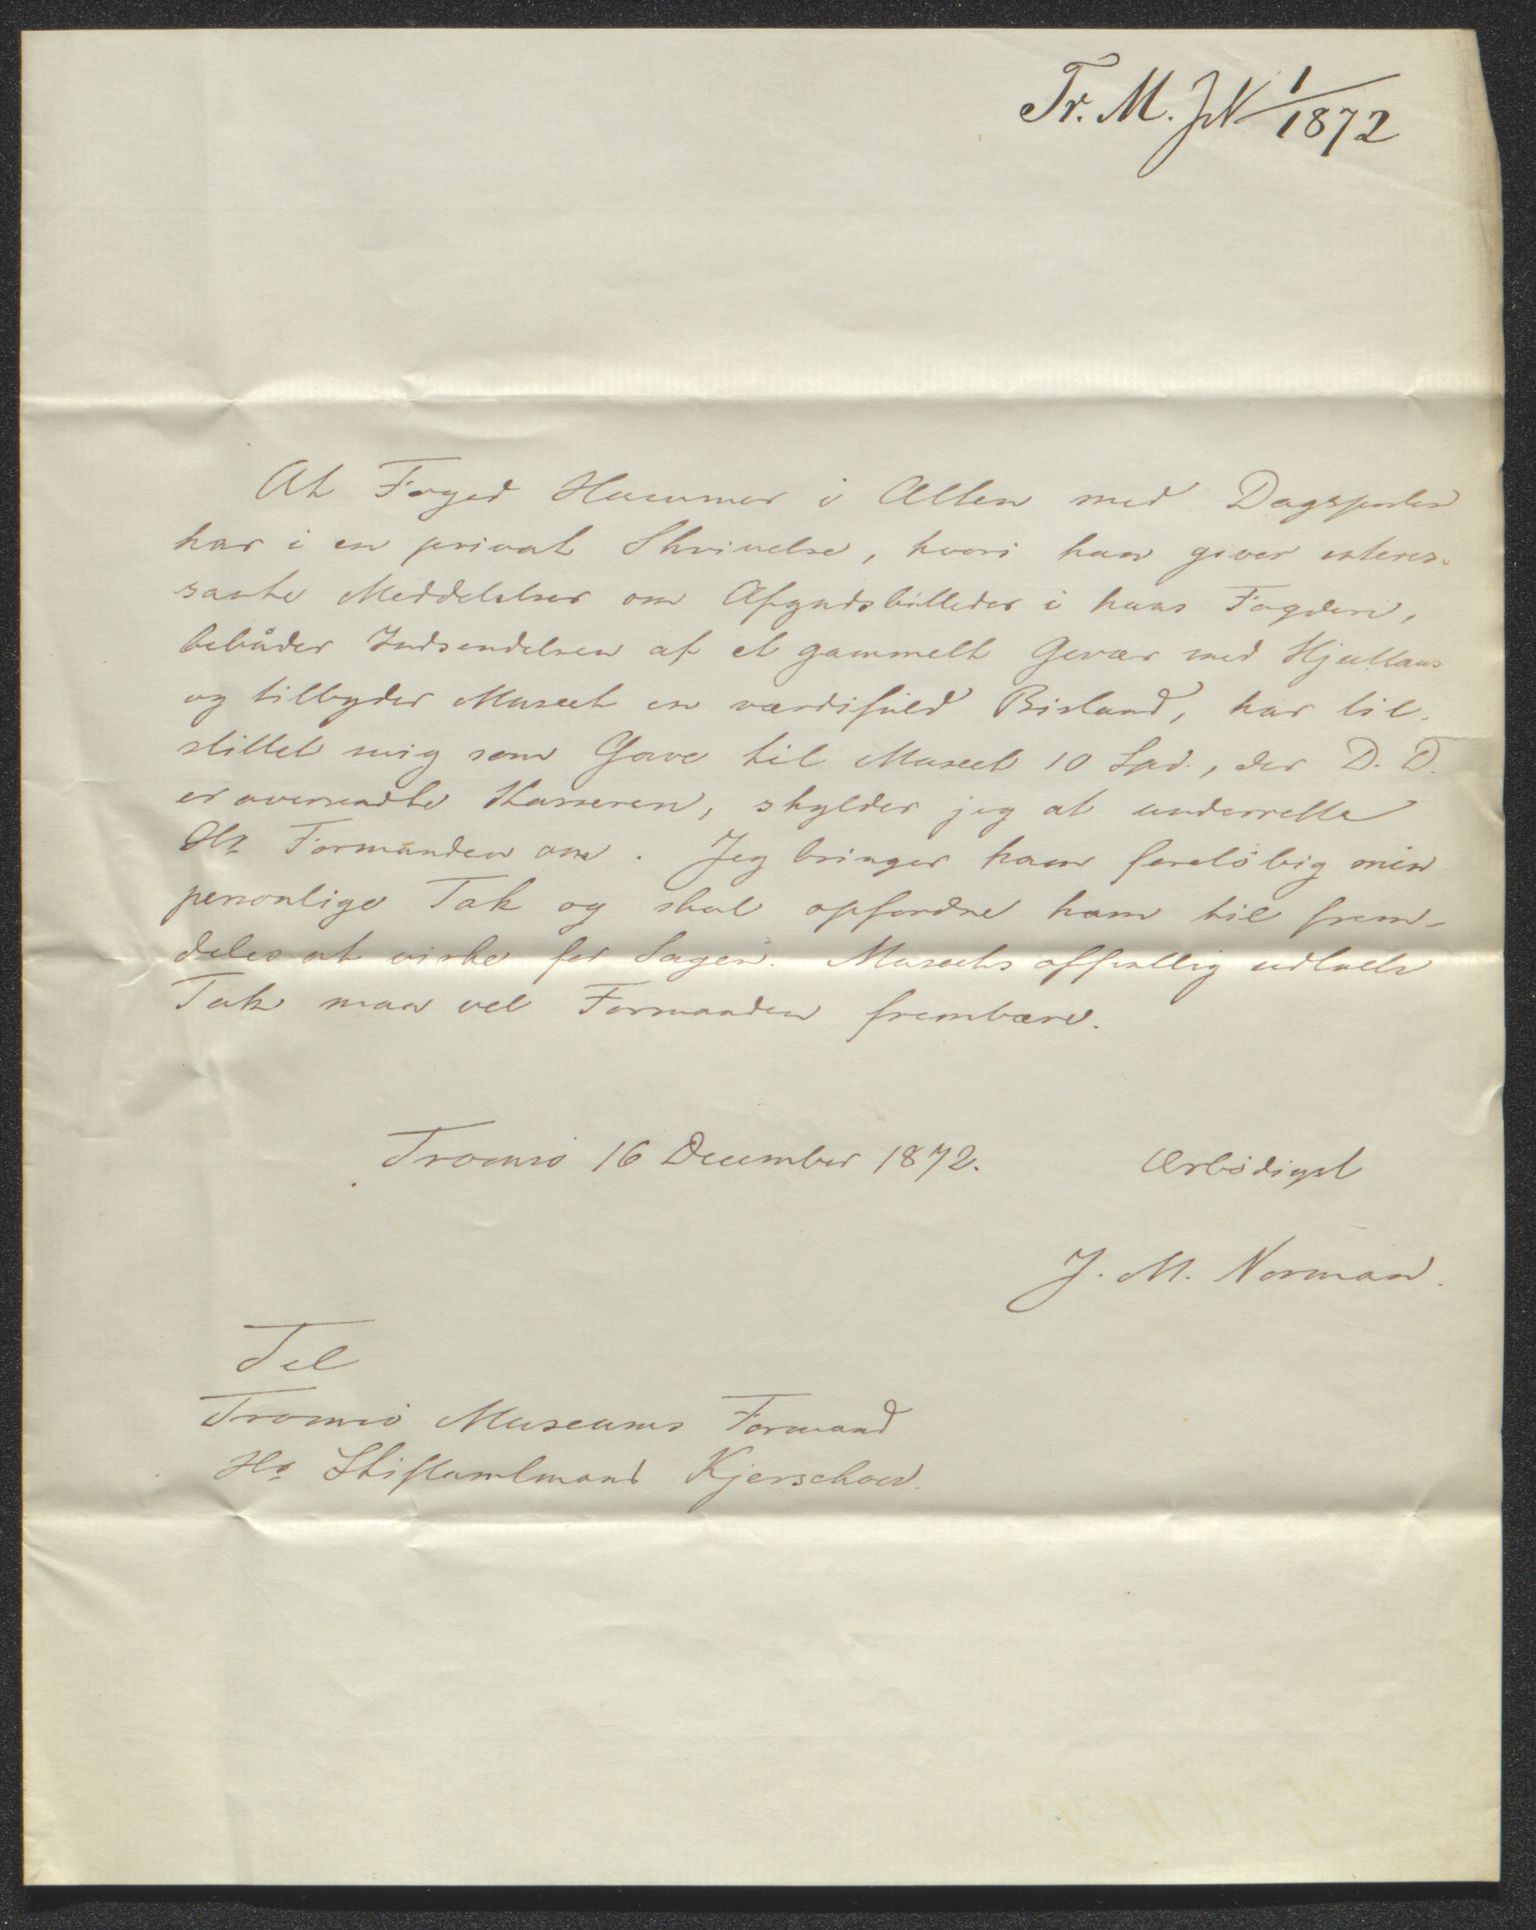 Tr. M. JN 1/1872
At Foged Hammer i Alten med Dagsposten
har i en privat Skrivelse, hvori han giver interes-
sante Meddelelser om Afgudsbilleder i hans Fogderi,
bebåder Indsendelsen af et gammelt Gevær med Hjullaas
og tilbyder Museet en værdifuld Bistand, har til-
stillet mig som Gave til Museet 10 Spd., der D. D.
er oversendte Kasseren, skylder jeg at underrette
Hr Formanden om. Jeg bringer ham foreløbig min
personlige Tak og skal opfordre ham til frem-
deles at virke for Sagen. Museets offentlig udtalte
Tak maa vel Formanden frembære.
Tromsø 16 December 1872. Ærbødigst
J. M. Norman.
Til
Tromsø Museums Formand
Hr Stiftamtmand Kjerschow.